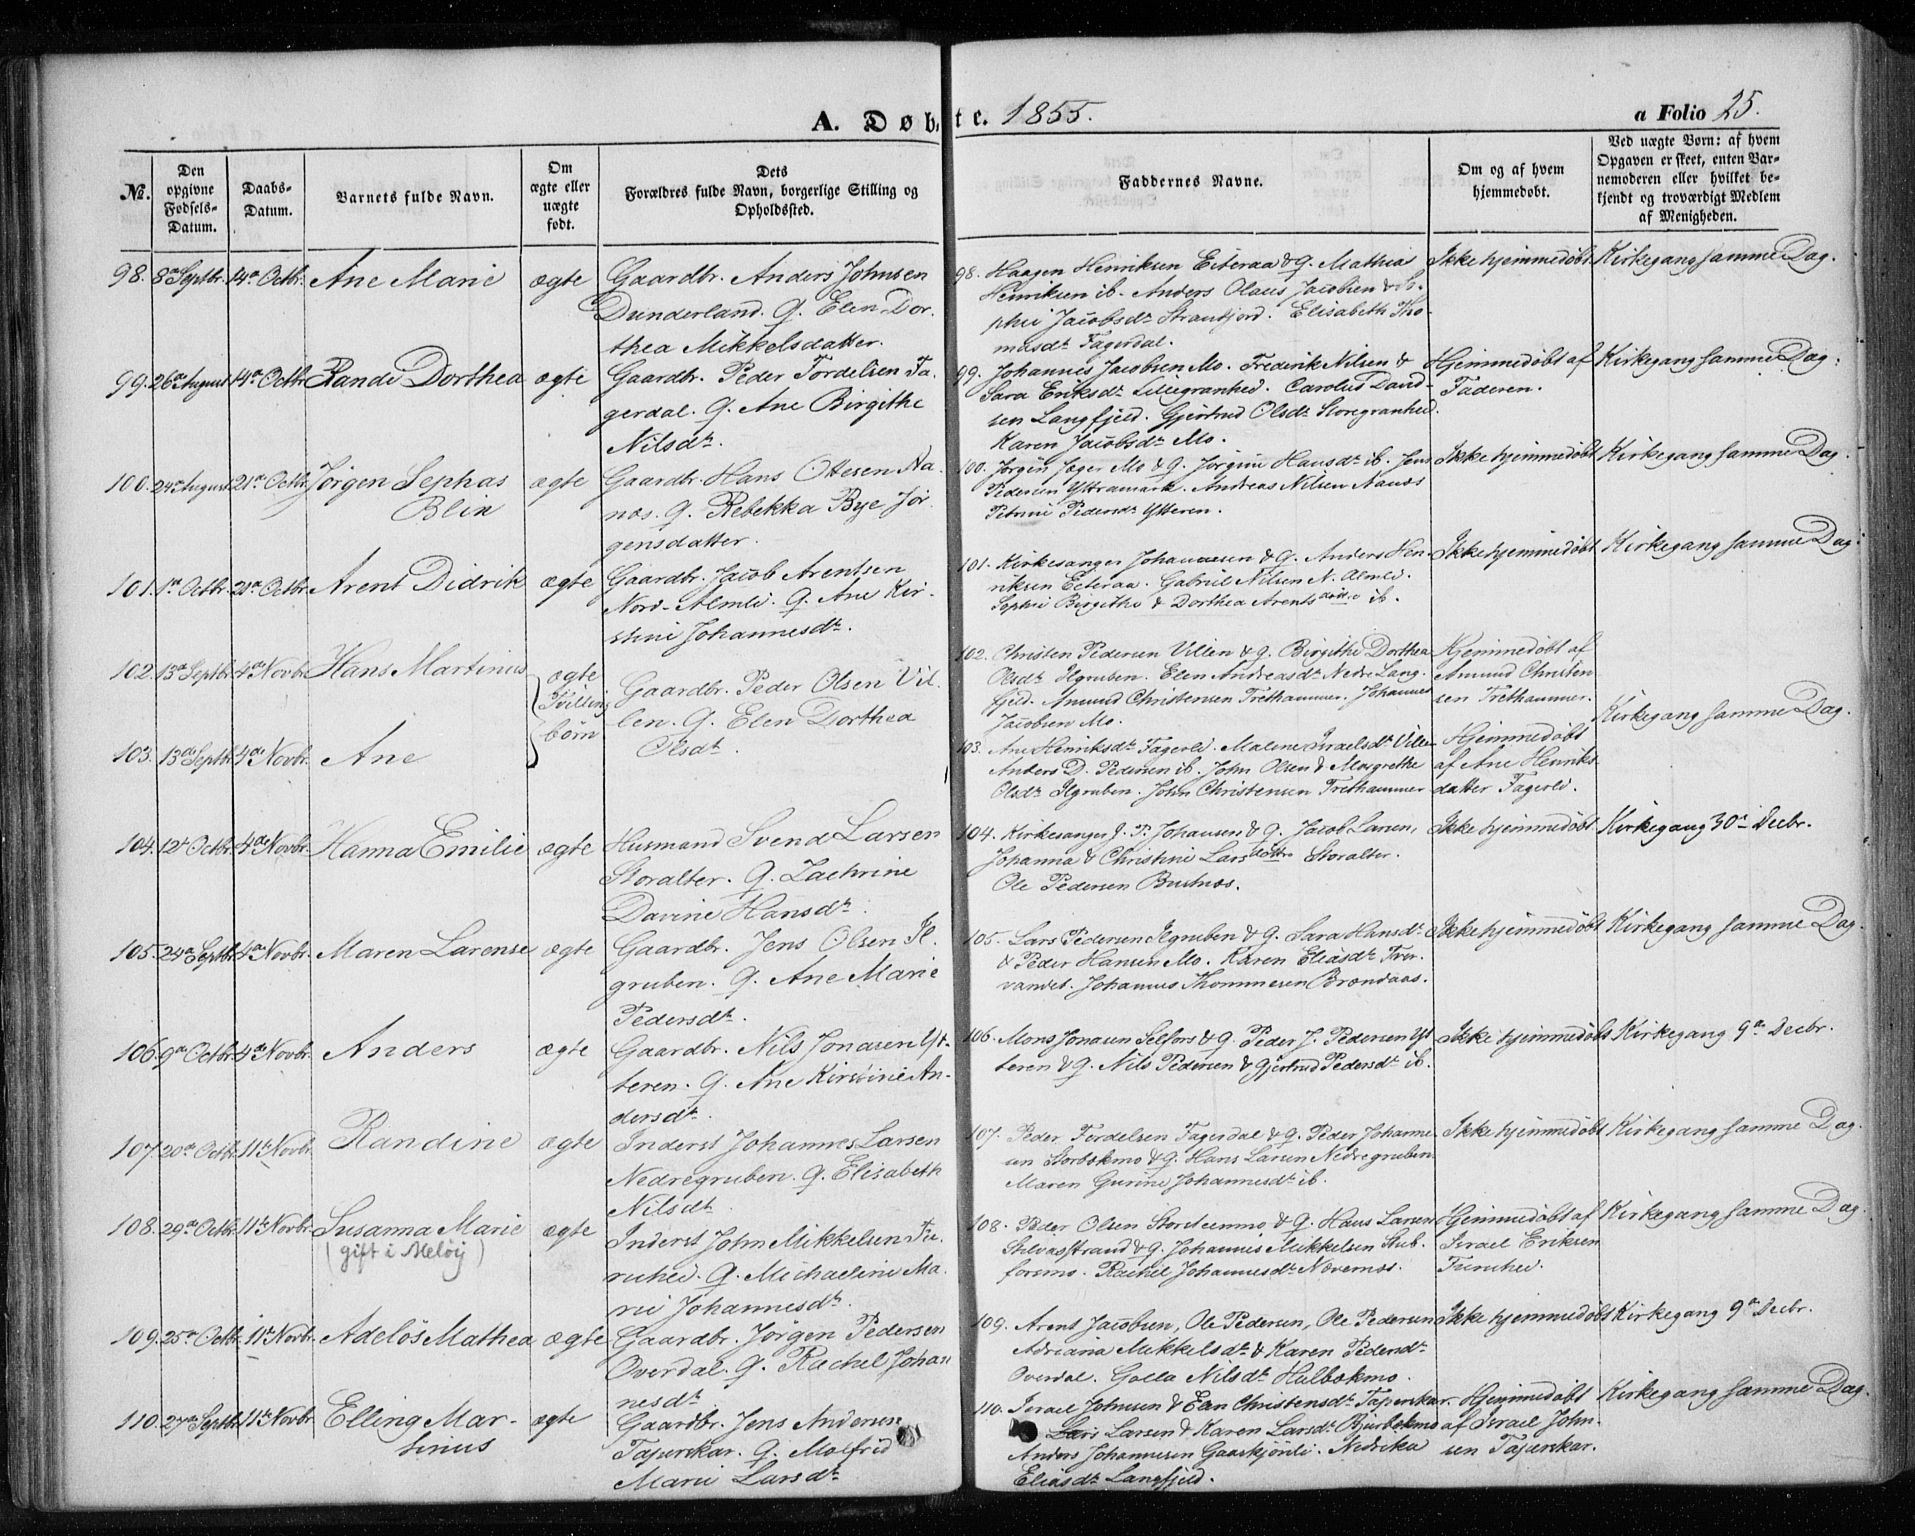 A. Døbte. 1855.
a Folio 25.
No.
Den opgivne Fødsels-Datum.
Daabs-Datum.
Barnets fulde Navn.
Om ægte eller uægte født.
Dets Forældres fulde Navn, borgerlige Stilling og Opholdssted.
Faddernes Navne.
Om og af hvem hjemmedøbt.
Ved uægte Børn: af hvem Opgaven er skeet, enten Barnemoderen eller hvilket bekjendt og troværdigt Medlem af Menigheden.
98. 8de Septbr. 14de Octbr. Ane Marie ægte
Gaardbr. Anders Johnsen
Dunderland. Q. Elen Dor-
thea Mikkelsdatter.
98. Haagen Henriksen Eiteraa & Q. Mathia
Henriksen ib. Anders Olaus Jacobsen & So-
phie Jacobsdr Strantjord. Elisabeth Tho-
masdr Fagerdal.
Ikke hjemmedøbt
Kirkegang samme Dag.
99. 26de August 14de Octbr Rande Dorthea ægte
Gaardbr. Peder Tordelsen Fa-
gerdal. Q. Ane Birgithe
Nilsdr.
99. Johannes Jacobsen Mo. Frederik Nilsen &
Sara Eriksdr Lillegranhei. Carolus David-
sen Langfjeld. Gjertrud Olsdr Storegranhei.
Karen Jacobsdr Mo.
Hjemmedøbt af
Faderen.
Kirkegang samme Dag.
100. 24de August 21de Octbr Jørgen Sephas
Blix ægte
Gaardbr. Hans Ottesen Aa-
næs. Q. Rebekka Bye Jør-
gensdatter.
100. Jørgen Jæger Mo & Q. Jørgine Hansdr ib. Jens
Pedersen Yttramark. Andreas Nilsen Aanæs
Petrine Pedersdr Ytteren.
Ikke hjemmedøbt
Kirkegang samme Dag.
101. 1de Octbr. 21de Octbr. Arent Didrik ægte
Gaardbr. Jacob Arentsen
Nord-Almli. Q. Ane Kir-
stine Johannesdr.
101. Kirkesanger Johannesen & Q. Anders Hen-
riksen Eiteraa. Gabriel Nilsen N. Almli.
Sophie Birgithe & Dorthea Arents døttre ib.
Ikke hjemmedøbt
Kirkegang samme Dag.
102. 13de Septbr. 4de Novbr. Hans Martinus ægte
Tvilling
børn
Gaardbr. Peder Olsen Vil-
len. Q. Elen Dorthea
Olsdr.
102. Christen Pedersen Villen & Q. Birgithe Dorthea
Olsdr Ilgruben. Elen Andreasdr Nedre Lang-
fjeld. Amund Christensen Trethammer. Johannes
Jacobsen Mo.
Hjemmedøbt af
Amund Christen
sen Trethammer.
Kirkegang samme Dag.
103. 13de Septbr 4de Novbr. Ane
103. Ane Henriksdr Fagerli. Malene Israelsdr Villen
Anders D. Pedersen ib. John Olsen & Margrethe
Olsdr Ilgruben. John Christensen Trethammer
Hjemmedøbt
af Ane Henriks
datter Fagerli.
104. 12te Octbr 4de Novbr. Hanna Emilie ægte
Husmand Svend Larsen
Storalter. Q. Zachrine
Davine Hansdr.
104. Kirkesanger J. P. Johansen & Q. Jacob Larsen,
Johanna & Christine Lars døttre Storalter.
Ole Pedersen Bustnæs.
Ikke hjemmedøbt
Kirkegang 30de Decbr.
105. 24de Septbr 4de Novbr. Maren Larense ægte
Gaardbr. Jens Olsen Il-
gruben. Q. Ane Marie
Pedersdr.
105. Lars Pedersen Ilgruben & Q. Sara Hansdr
& Peder Hansen Mo. Karen Eliasdr Tver-
vandet. Johannes Thommesen Brændaas.
Ikke hjemmedøbt
Kirkegang samme Dag.
106. 9de Octbr. 4de Novbr. Anders ægte
Gaardbr. Nils Jonasen Yt-
teren. Q. Ane Kirstine An-
dersdr.
106. Mons Jonasen Selfors & Q. Peder J. Pedersen Yt
teren & Q. Nils Pedersen & Gjertrud Pedersdr ib.
Ikke hjemmedøbt
Kirkegang 9de Decbr.
107. 20de Octbr. 11te Novbr. Randine ægte
Inderst Johannes Larsen
Nedregruben. Q. Elisabeth
Nilsdr.
107. Peder Tordelsen Fagerdal & Q. Peder Johanne-
sen Storbækmo & Q. Hans Larsen Nedregruben
Maren Gurine Johannesdr ib.
Ikke hjemmedøbt
Kirkegang samme Dag.
108. 29de Octbr. 11te Novbr. Susanna Marie ægte
(gift i Meløy)
Inderst John Mikkelsen Fu-
ruhei. Q. Michaeline Ma-
rie Johannesdr.
108. Peder Olsen Storsteenmo & Q. Hans Larsen
Selvasstrand & Q. Johannes Mikkelsen Stub-
forsmo. Rachel Johannesdr Nævernæs.
Hjemmedøbt af
Israel Eriksen
Furuhei.
Kirkegang samme Dag.
109. 25de Octbr. 11te Novbr. Adeløs Mathea ægte
Gaardbr. Jørgen Pedersen
Overdal. Q. Rachel Johan
nesdr.
109. Arent Jacobsen, Ole Pedersen, Ole Pedersen
Adriana Mikkelsdr & Karen Pedersdr
Overdal. Golla Nilsdr Hulbækmo.
Ikke hjemmedøbt
Kirkegang 9de Decbr.
110. 27de Septbr 11te Novbr Elling Mar-
tinus ægte
Gaardbr. Jens Andersen
Tajurskar. Q. Molfrid
Marie Larsdr
110. Israel Johnsen & Ean Christensdr Tajurskar.
Lars Larsen & Karen Larsdr Bjurbækmo
Anders Johannesen Gaaskjønli. Nedrika
Eliasdr Langfjeld.
Hjemmedøbt
af Israel John-
sen Tajurskar.
Kirkegang samme Dag.